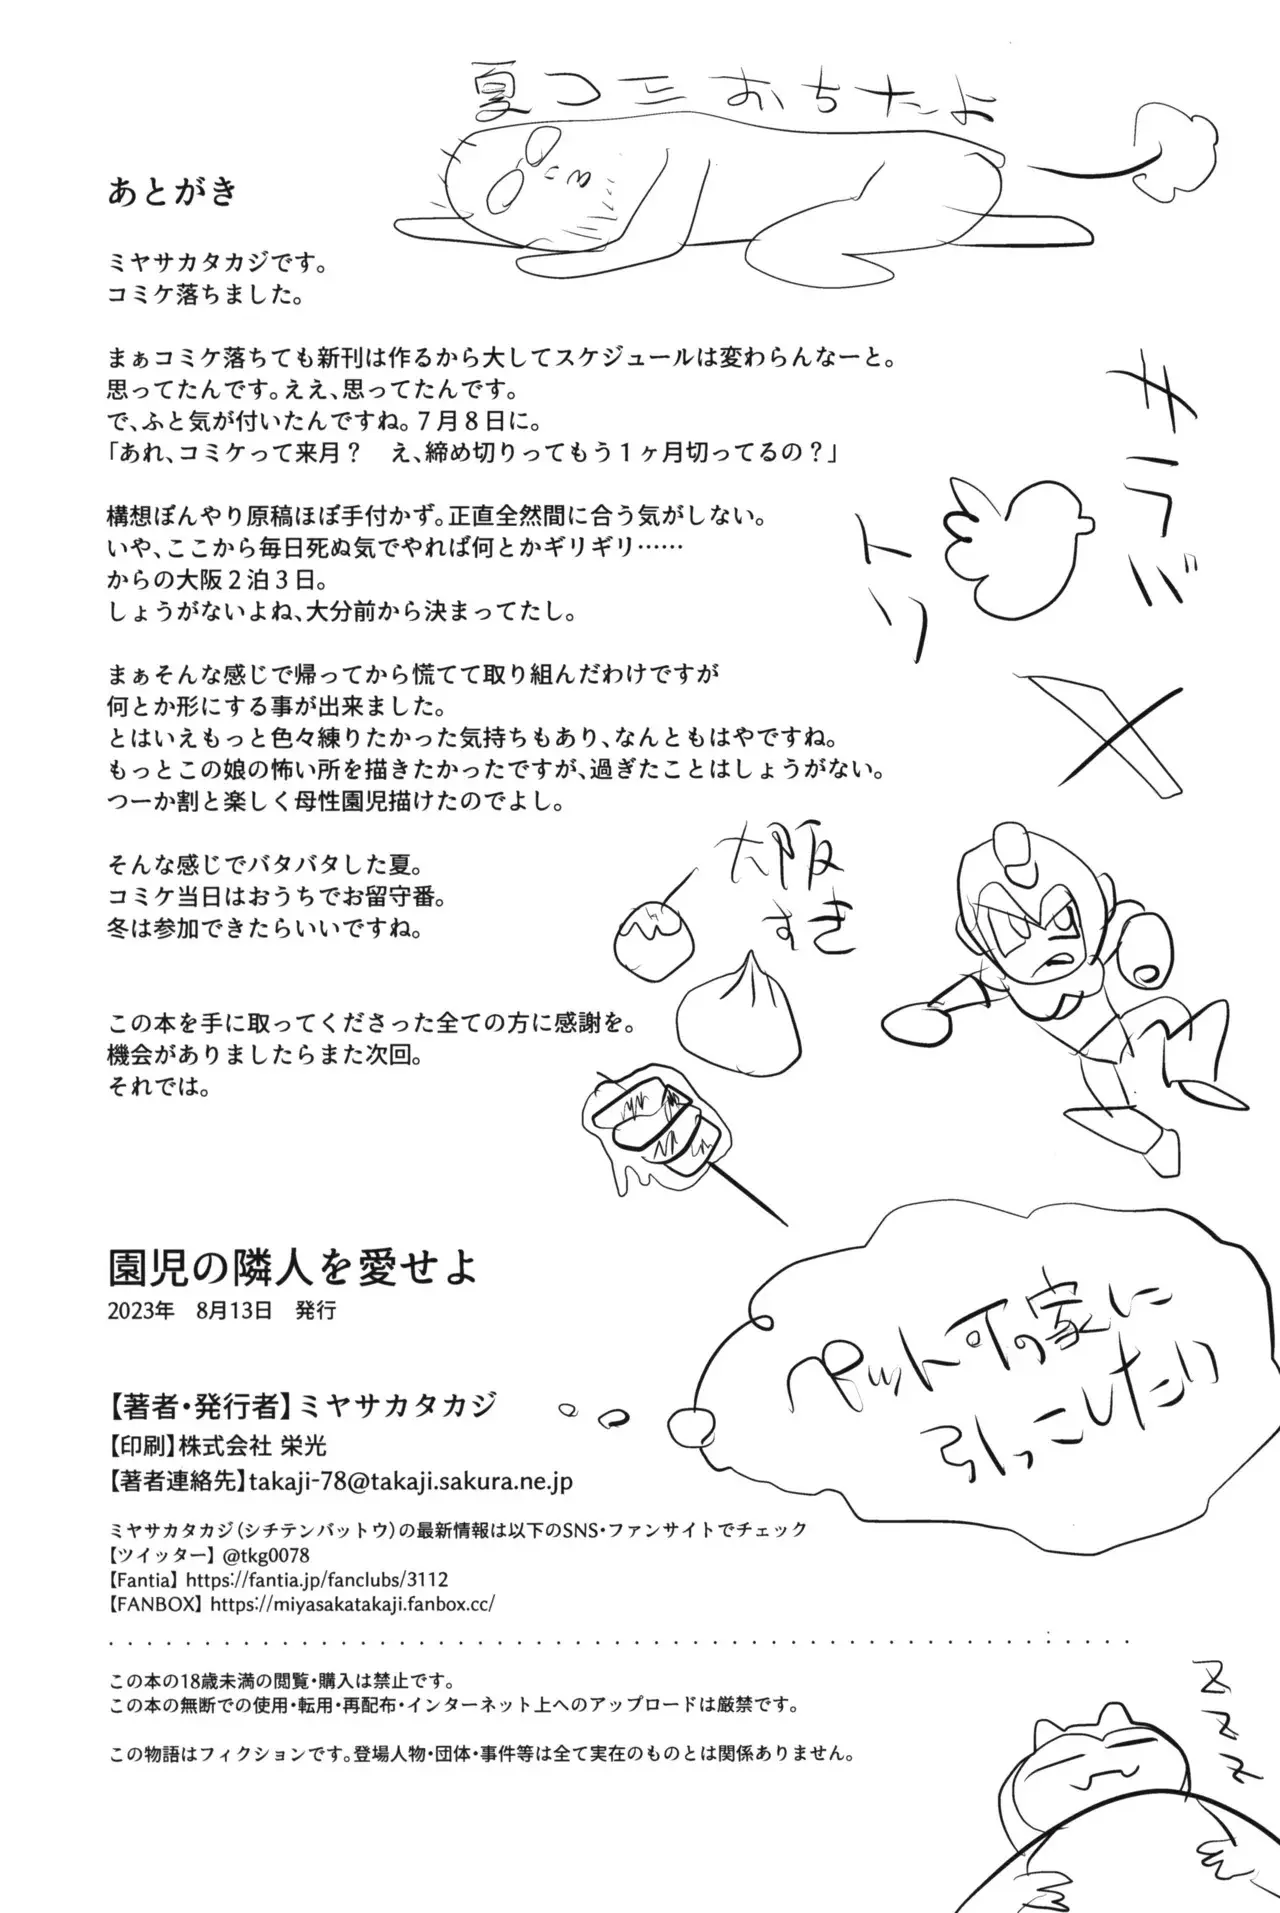 夏コミおちたよ
あとがき
ミヤサカタカジです。
コミケ落ちました。
まぁコミケ落ちても新刊は作るから大してスケジュールは変わらんなーと。
思ってたんです。ええ、思ってたんです。
で、ふと気が付いたんですね。7月8日に。
「あれ、コミケって来月？　え、締め切りってもう1ヶ月切ってるの？」
構想ぼんやり原稿ほぼ手付かず。正直全然間に合う気がしない。
いや、ここから毎日死ぬ気でやれば何とかギリギリ……
からの大阪2泊3日。
しょうがないよね、大分前から決まってたし。
まぁそんな感じで帰ってから慌てて取り組んだわけですが
何とか形にする事が出来ました。
とはいえもっと色々練りたかった気持ちもあり、なんともはやですね。
もっとこの娘の怖い所を描きたかったですが、過ぎたことはしょうがない。
つーか割と楽しく母性園児描けたのでよし。
そんな感じでバタバタした夏。
コミケ当日はおうちでお留守番。
冬は参加できたらいいですね。
この本を手に取ってくださった全ての方に感謝を。
機会がありましたらまた次回。
それでは。
サラバ
トリ
大阪
すき
ペット可の家に
引っこしたい
園児の隣人を愛せよ
2023年　8月13日　発行
【著者・発行者】ミヤサカタカジ
【印刷】株式会社 栄光
【著者連絡先】takaji-78@takaji.sakura.ne.jp
ミヤサカタカジ（シチテンバットウ）の最新情報は以下のSNS・ファンサイトでチェック
【ツイッター】@tkg0078
【Fantia】https://fantia.jp/fanclubs/3112
【FANBOX】https://miyasakatakaji.fanbox.cc/
この本の18歳未満の閲覧・購入は禁止です。
この本の無断での使用・転用・再配布・インターネット上へのアップロードは厳禁です。
この物語はフィクションです。登場人物・団体・事件等は全て実在のものとは関係ありません。
ZZZZ